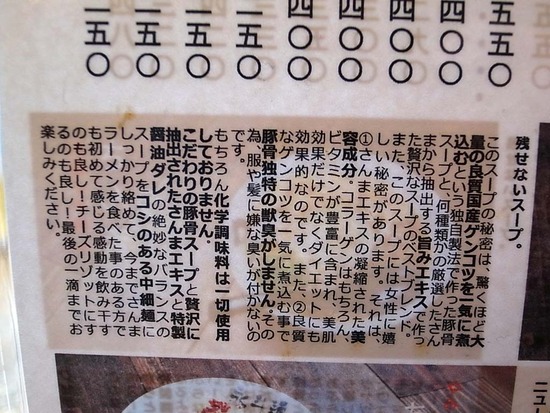 五五〇
四〇〇
四〇〇
四〇〇
四〇〇
一五〇
一五〇
一五〇
一五〇
残せないスープ。
このスープの秘密は、驚くほど大
量の良質国産ゲンコツを一気に煮
込むという独自製法で作った豚骨
スープと、何種類かの厳選したさん
まから抽出する旨みエキスで作っ
た贅沢なスープのベストブレンド。
また、このスープには女性に嬉
しい秘密があります。それは、
①さんまエキスの凝縮された美
容成分。コラーゲンはもちろん、
ビタミンが豊富に含まれ、美肌
効果だけでなくダイエットにも
効果的なのです。また、②良質
なゲンコツを一気に煮込む事で
豚骨独特の獣臭がしません。その
為、服や髪に嫌な臭いが付かないの
です。
もちろん化学調味料は一切使用
しておりません。
こだわりの豚骨スープと贅沢に
抽出されたさんまエキスと特製
醤油ダレの絶妙なバランスの
スープをコシのある中細麺に
しっかり絡めて、今までさんま
ラーメンを食べた事のある方で
も初めて感じる感動を飲み干す
のも良し!チーズリゾットにす
るのも良し!最後の一滴までお
楽しみください。
ニュ